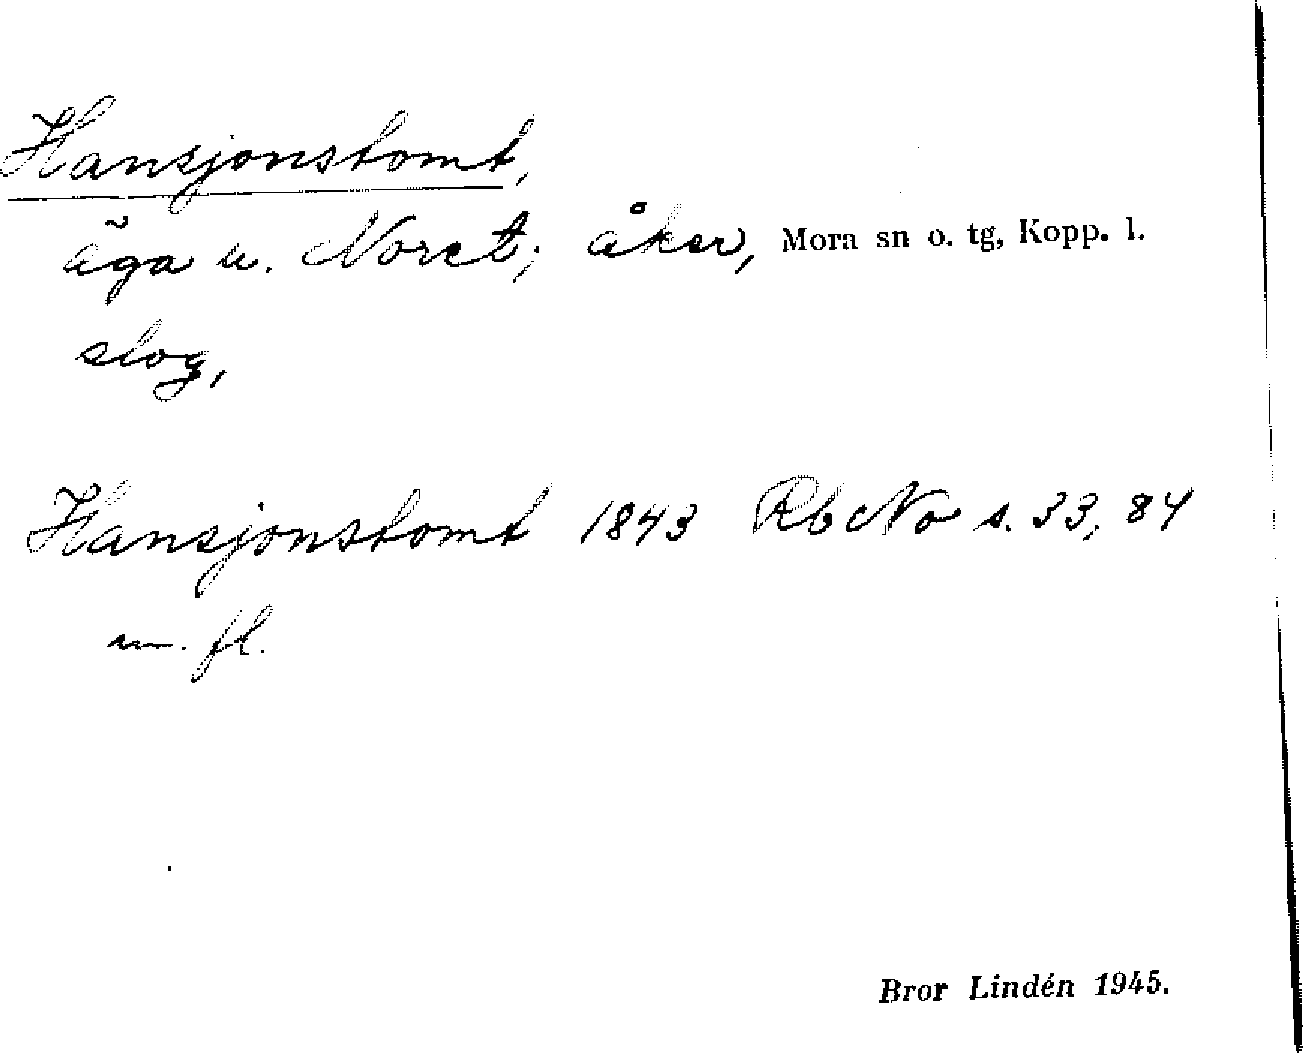 Hansjonstomt,
äga u. Noret; åker, Mora sn o. tg, Kopp. l.
slog,
Hansjonstomt 1843 Rb No s. 33, 84
m. fl.
Bror Lindén 1945.